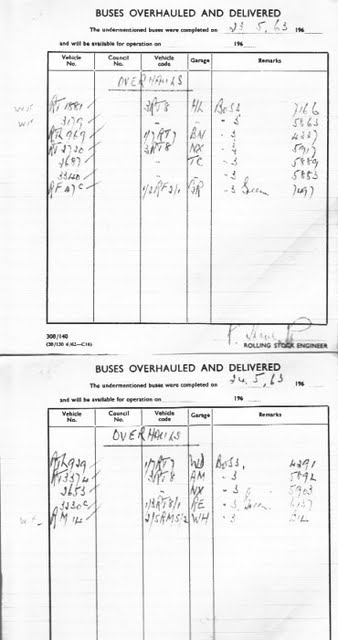 BUSES OVERHAULED AND DELIVERED
The undermentioned buses were completed on 23.5.63 196
and will be available for operation on 196
Vehicle No. Council No. Vehicle code Garage Remarks
OVERHAULS
RT 1881 3RT8 HL BoSS 7166
3179 - - - S 5863
RTL 969 1/7RT7 BN - 3 4327
RT 2720 3RT8 NX - 3 5917
2687 - TC - 3 5889
- - 3 5883
RF 47C 1/2RF2/1 - 3 Green 7497
308/140
(30/130 4/62—C16)
ROLLING STOCK ENGINEER
BUSES OVERHAULED AND DELIVERED
The undermentioned buses were completed on 24.5.63 196
and will be available for operation on 196
Vehicle No. Council No. Vehicle code Garage Remarks
OVERHAULS
RTL 929 1/7RT7 WD BoSS. 4291
RT 3374 3RT8 AM - 3 5892
2653 - NX - 3 5903
3230C 1/3RT8/1 RE - 3 Green 6137
RM 14 2/5RM5/2 WH - 3